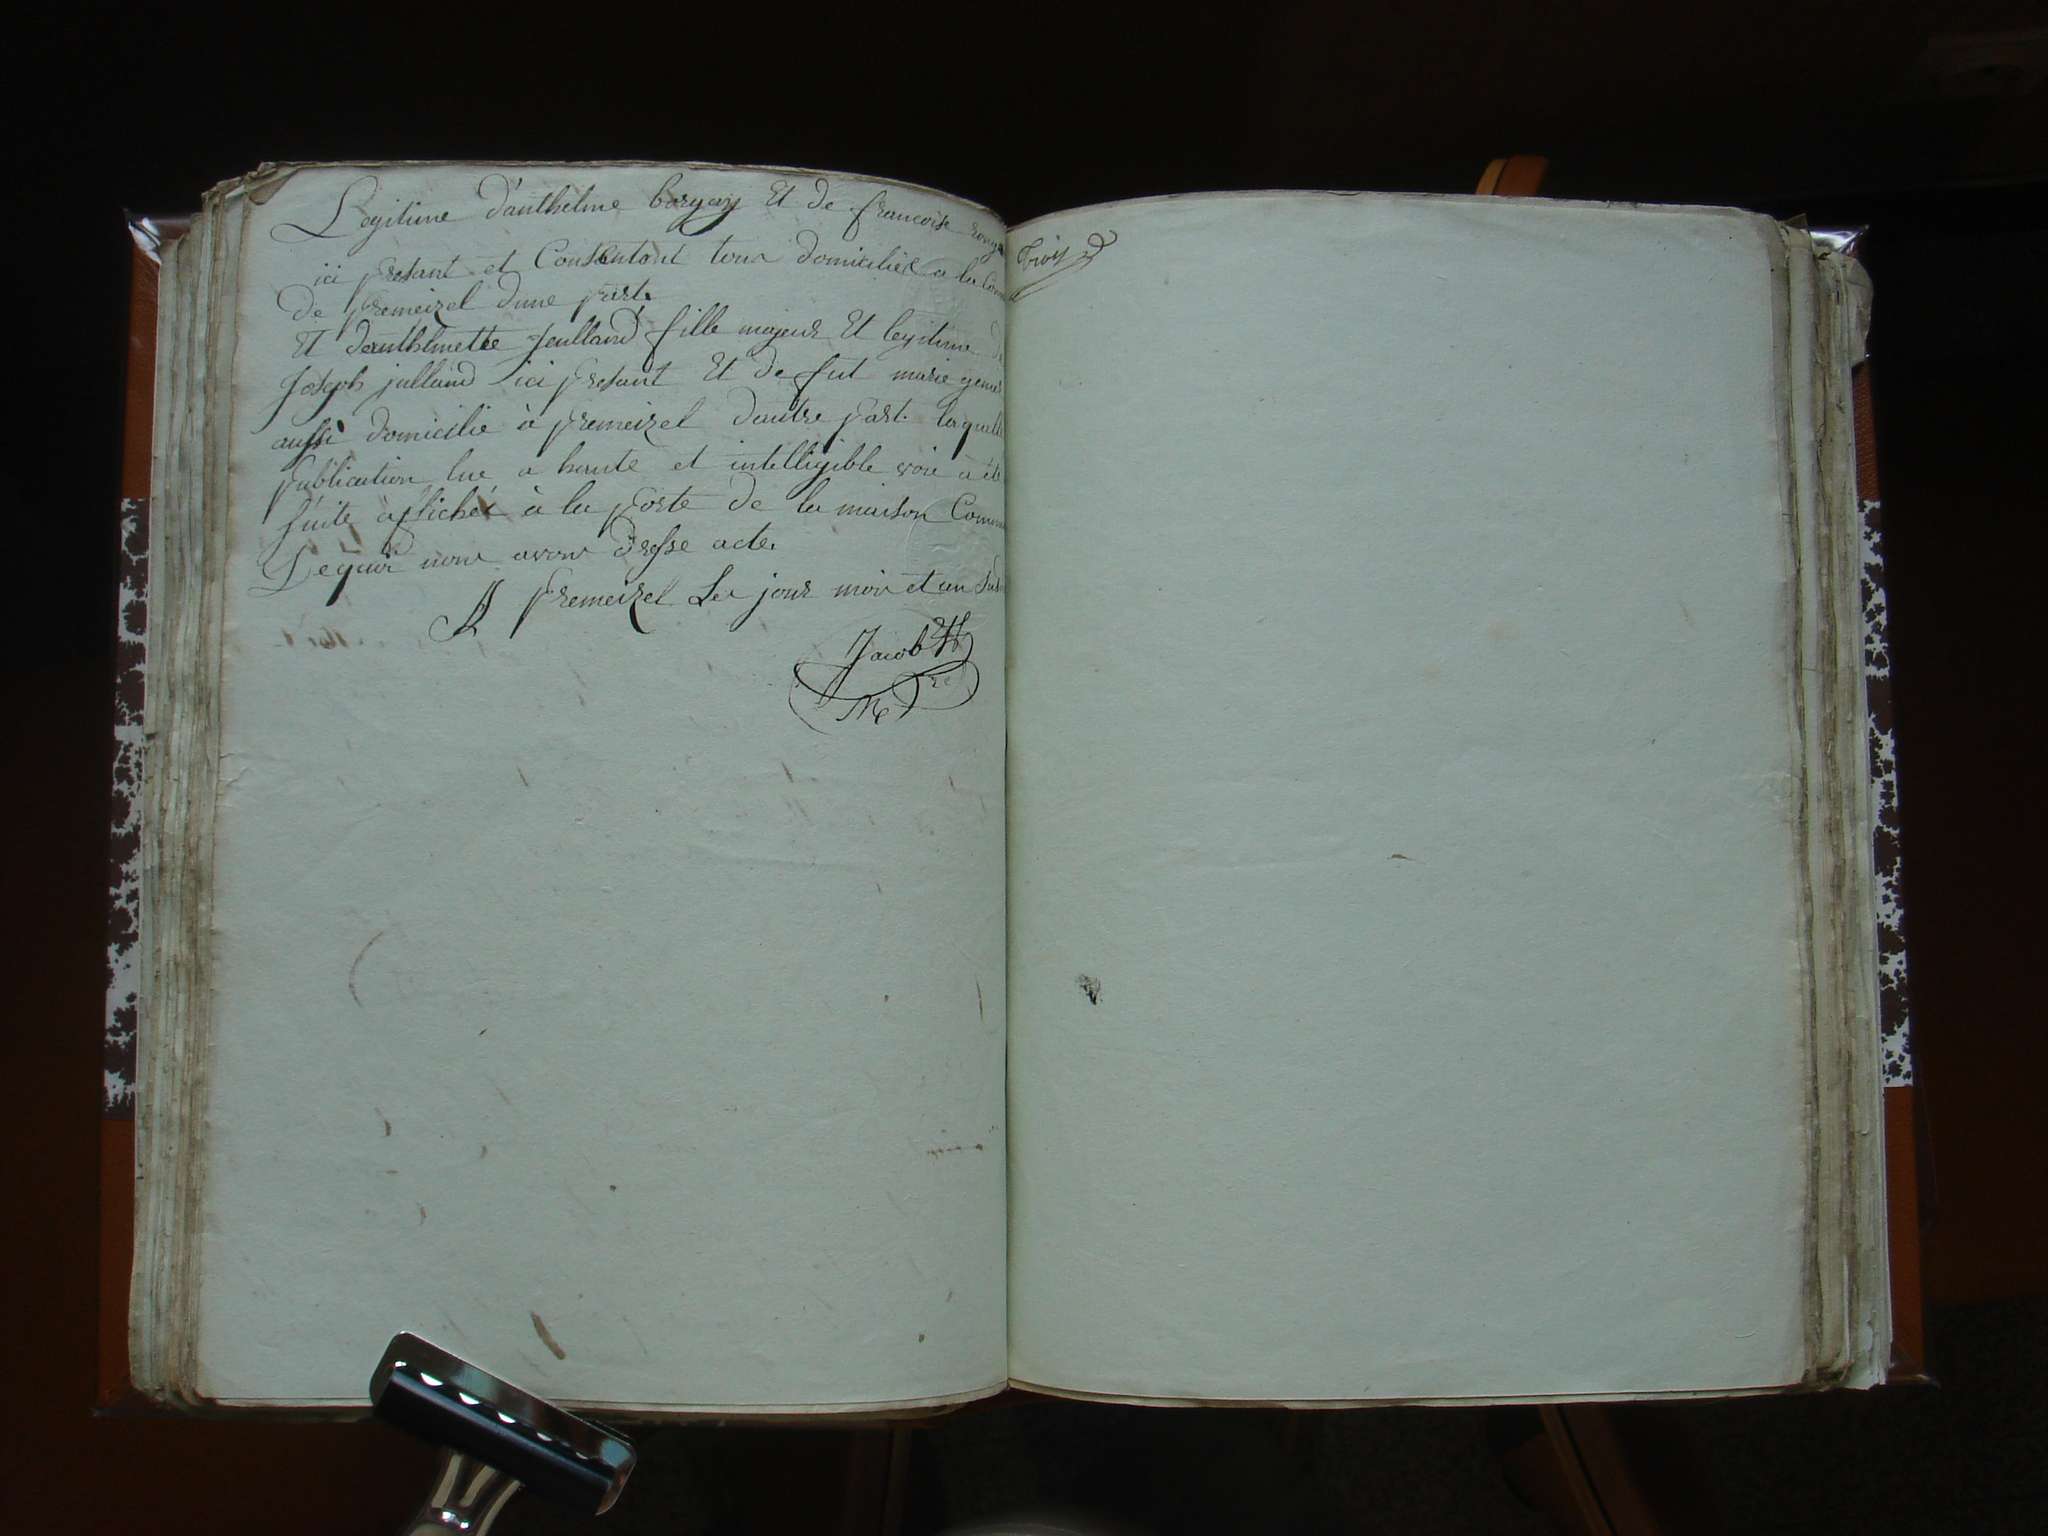 Legitime d'anthelme borgey Et de francoise
ici presant et Consentant tous domiciliés a la Com
de premeizel dune part.
Et danthelmette Julland fille majeur Et legitime de
Joseph julland ici presant Et de fut marie
aussi domicilié à premeizel dautre part. laquelle
publication lue a haute et intelligible voie a été
suite affichée à la porte de la maison Comm
Dequoi nous avons dressé acte.
A premeizel Les jour mois et an Sus
Jacob
Mre
trois